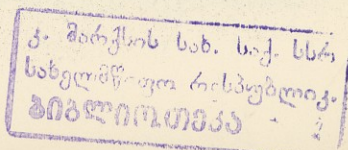 კ. მარქსის სახ. საქ. სსრ
სახელმწიფო რესპუბლიკ.
ბიბლიოთეკა